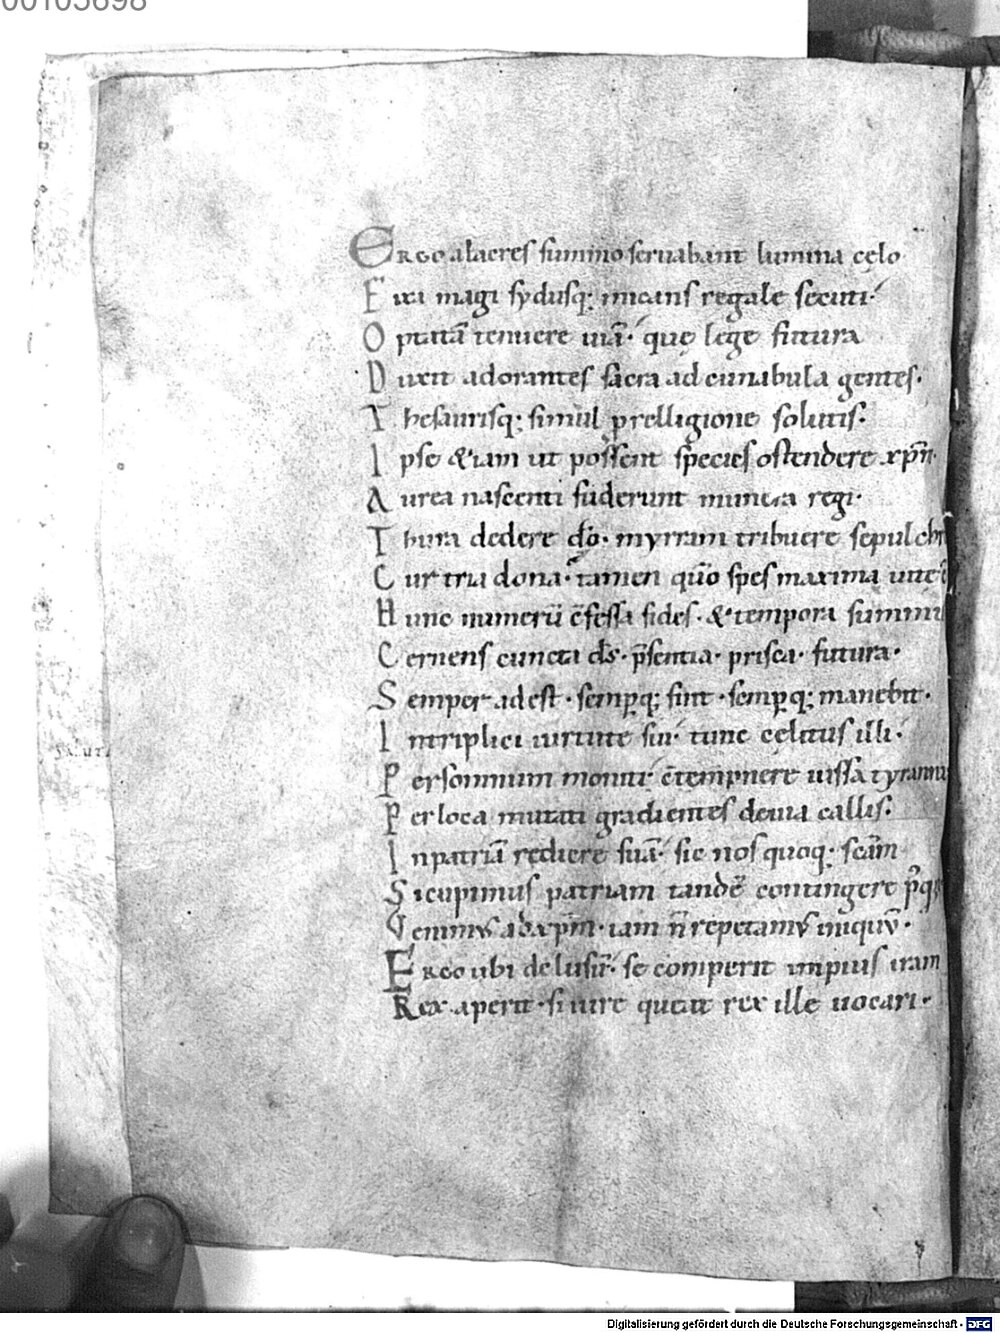 00105698
ERGO alacres summo seruabant lumina cęlo
Fixi magi sydusq; micans regale secuti·
Optatā tenuere uiā· quę lege futura
Duxit adorantes sacra ad cunabula gentes·
Thesaurisq; simul prelligione solutis·
Ipse &iam ut possent species ostendere xp̄m·
Aurea nascenti fuderunt munera regi·
Thura dedere dō· myrram tribuere sepulchr
Cur tria dona· tamen quō spes maxima uitę ē
Hunc numerū c̄fessa fides· & tempora summu
Cernens cuncta ds̄· p̄sentia· prisca· futura·
Semper adest· semp̱q; fuit· semp̱q; manebit·
Intriplici uirtute sui· tunc cęlitus illi·
Persomnum moniti· c̄tempnere iussa tyranni
Perloca mutati gradientes deuia callis·
Inpatriā rediere suā· sic nos quoq; scām
Sicupimus patriam tandē contingere
Venimus adxp̄m· iam n̄ repetamus iniquū·
ERGO ubi delusū· se comperit impius iram
Rex aperit· si iure queat rex ille uocari·
Digitalisierung gefördert durch die Deutsche Forschungsgemeinschaft - DFG